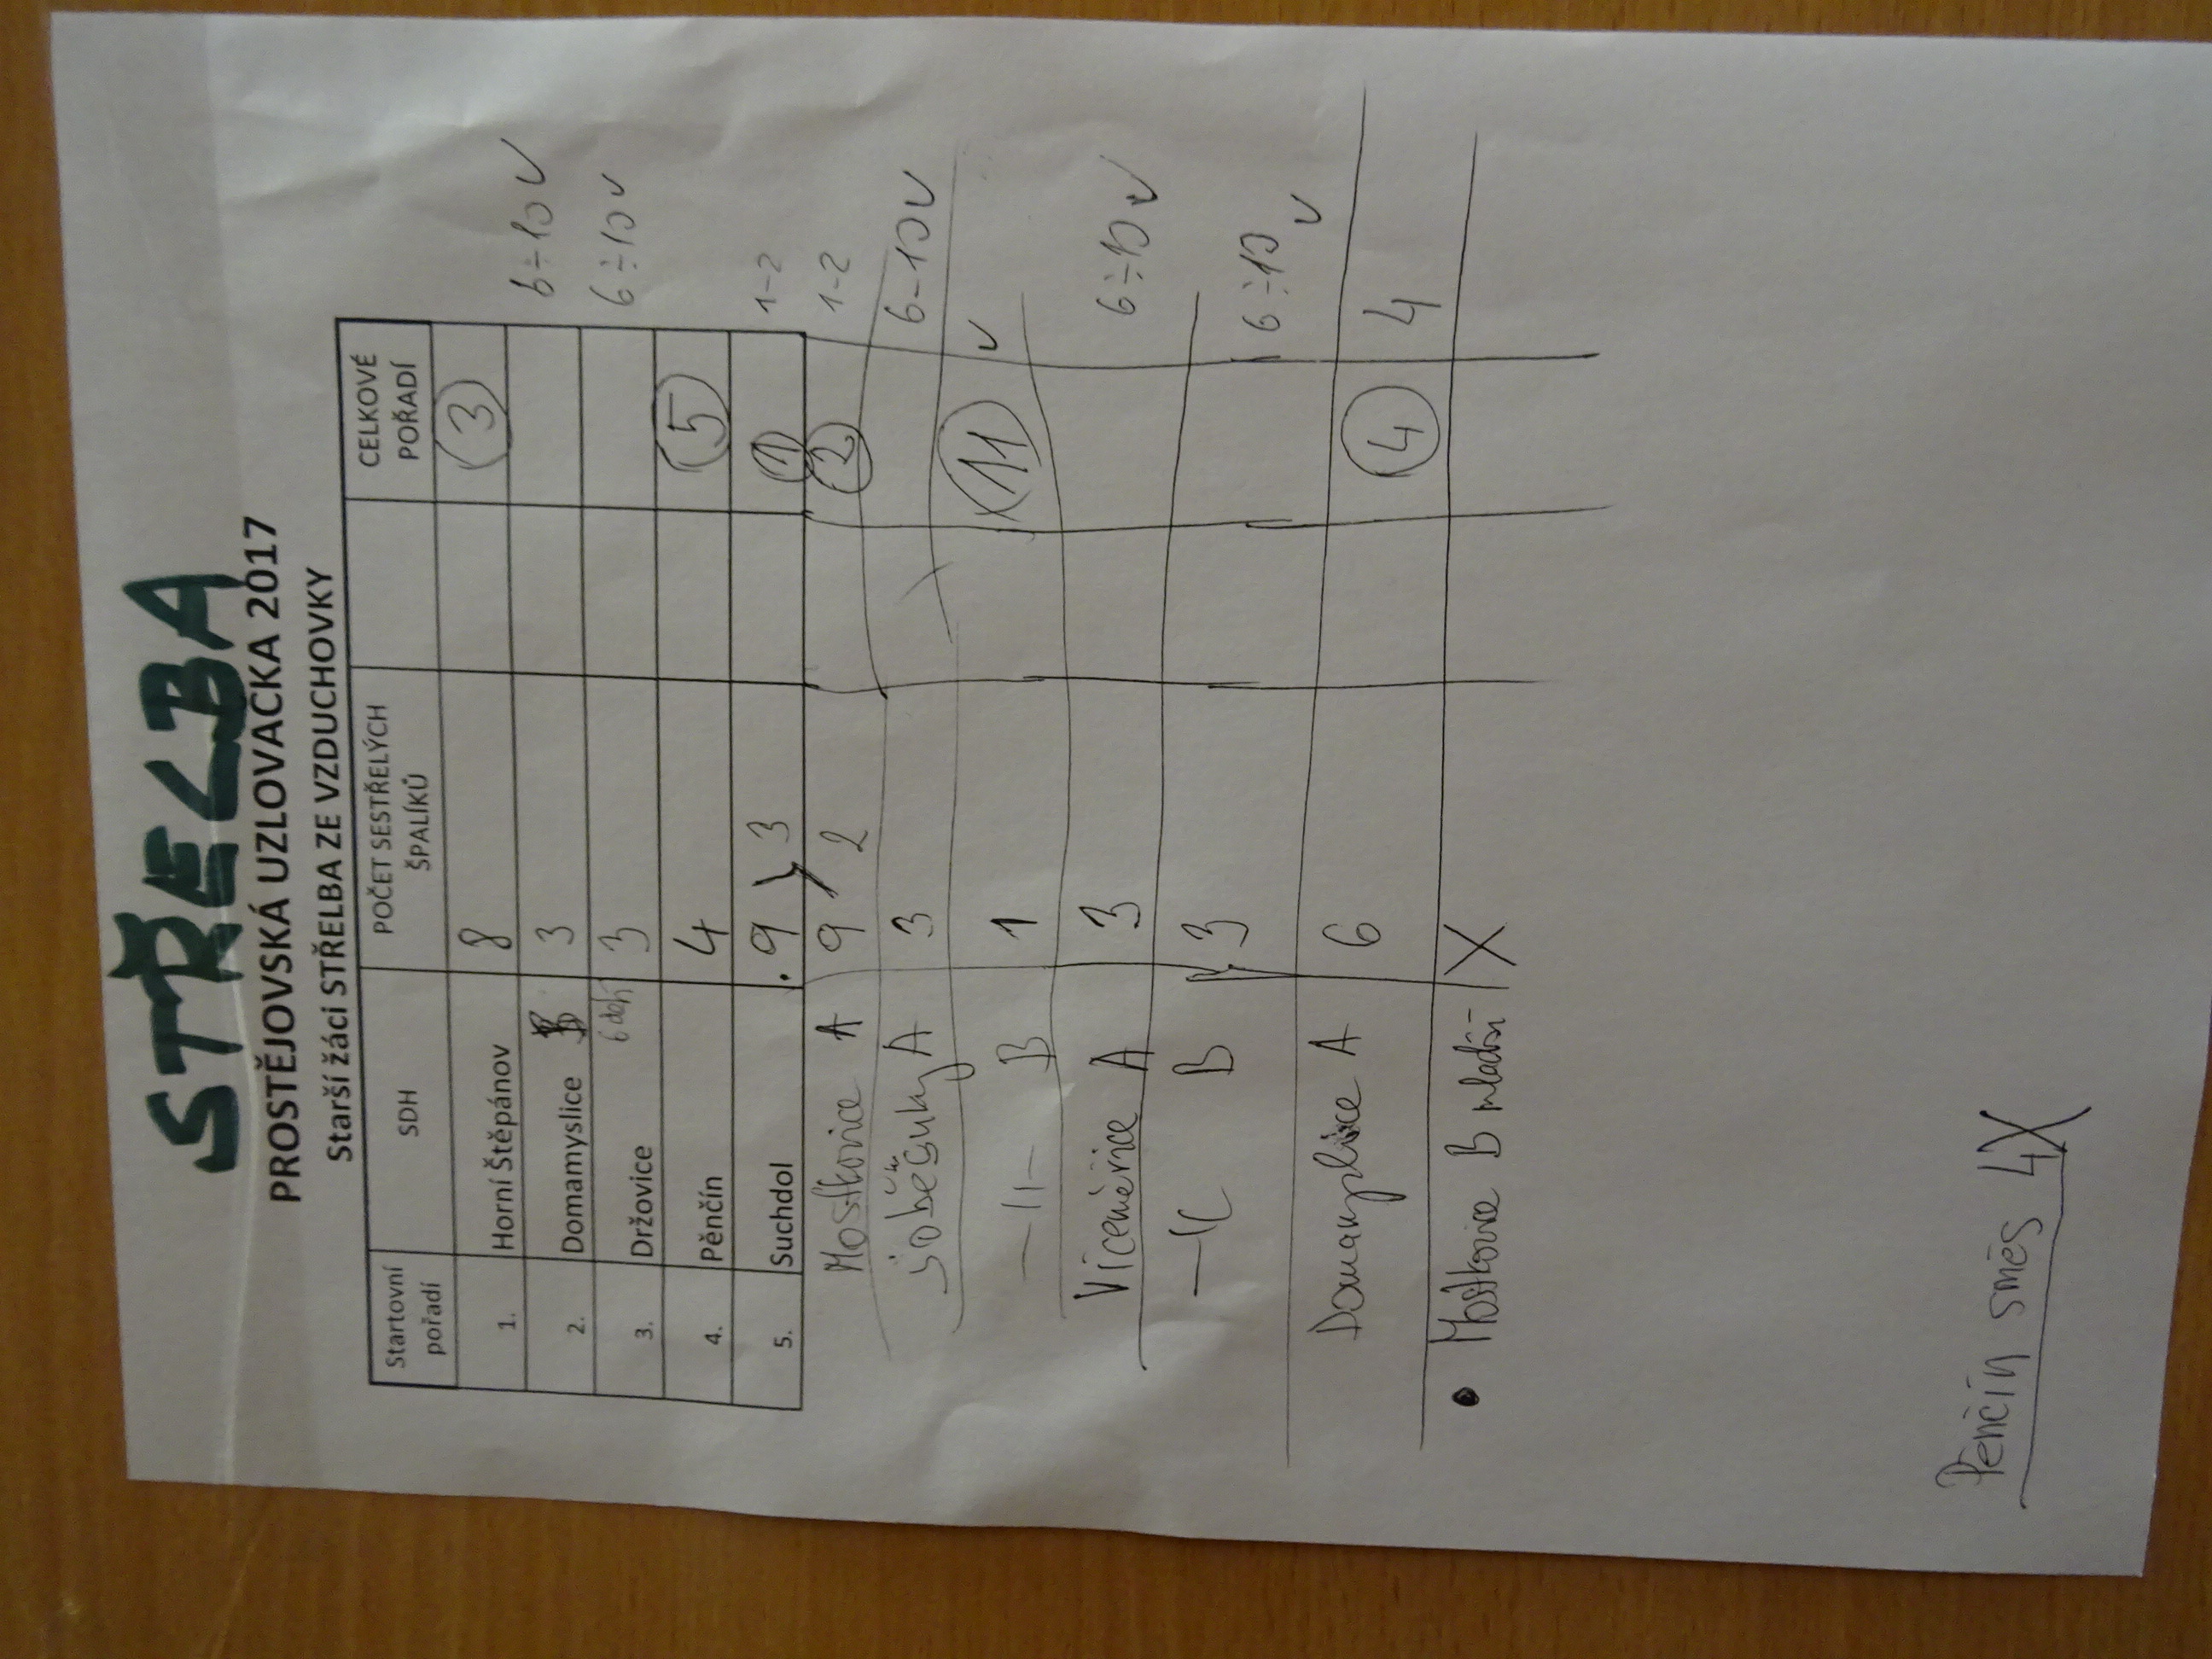 STŘELBA
PROSTĚJOVSKÁ UZLOVAČKA 2017
Starší žáci STŘELBA ZE VZDUCHOVKY
Startovní pořadí SDH POČET SESTŘELÝCH ŠPALÍKŮ CELKOVÉ POŘADÍ
1. Horní Štěpánov 8 3
2. Domamyslice B 3 6÷10 v
3. Držovice 3 6÷10 v
4. Pěnčín 4 5
5. Suchdol .9 } 3 1 1-2
Mostkovice A 9 2 2 1-2
A 3 6-10 v
-11- B 1 11 v
Vícemeřice A 3 6÷10 v
B 3 6÷10 v
Domamyslice A 6 4 4
• Mostkovice B mladší X
Pěnčín směs 4X